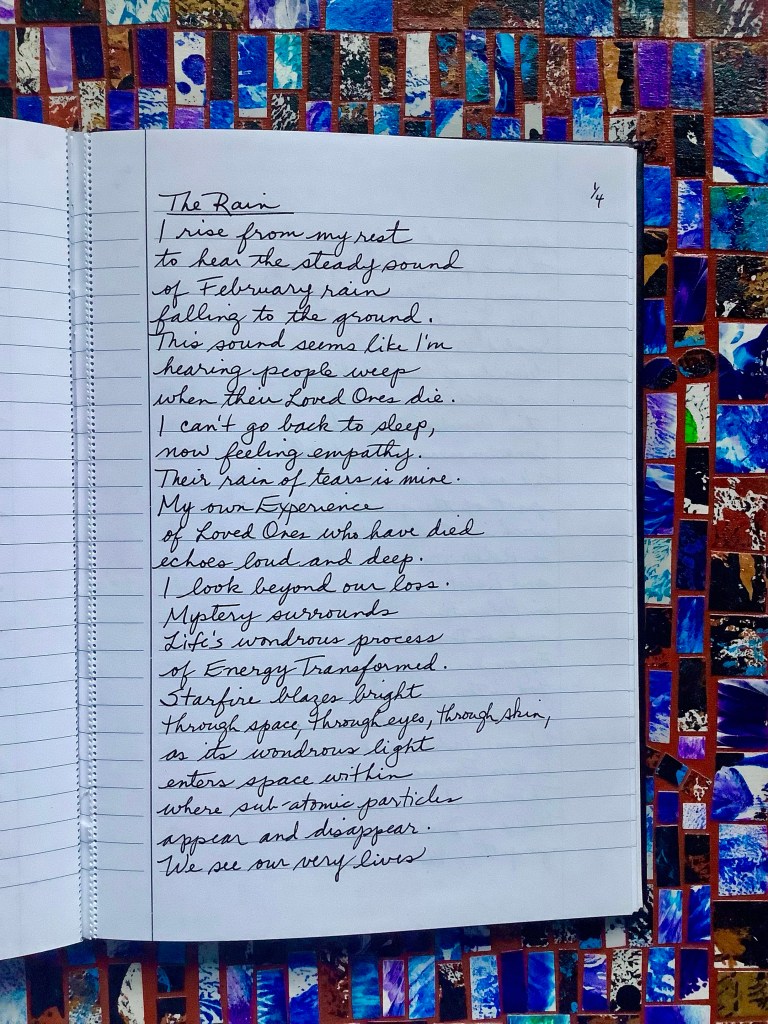 The Rain
1/4
I rise from my rest
to hear the steady sound
of February rain
falling to the ground.
This sound seems like I'm
hearing people weep
when their Loved Ones die.
I can't go back to sleep,
now feeling empathy.
Their rain of tears is mine.
My own Experience
of Loved Ones who have died
echoes loud and deep.
I look beyond our loss.
Mystery surrounds
Life's wondrous process
of Energy Transformed.
Starfire blazes bright
through space, through eyes, through skin,
as its wondrous light
enters space within
where sub-atomic particles
appear and disappear.
We see our very lives